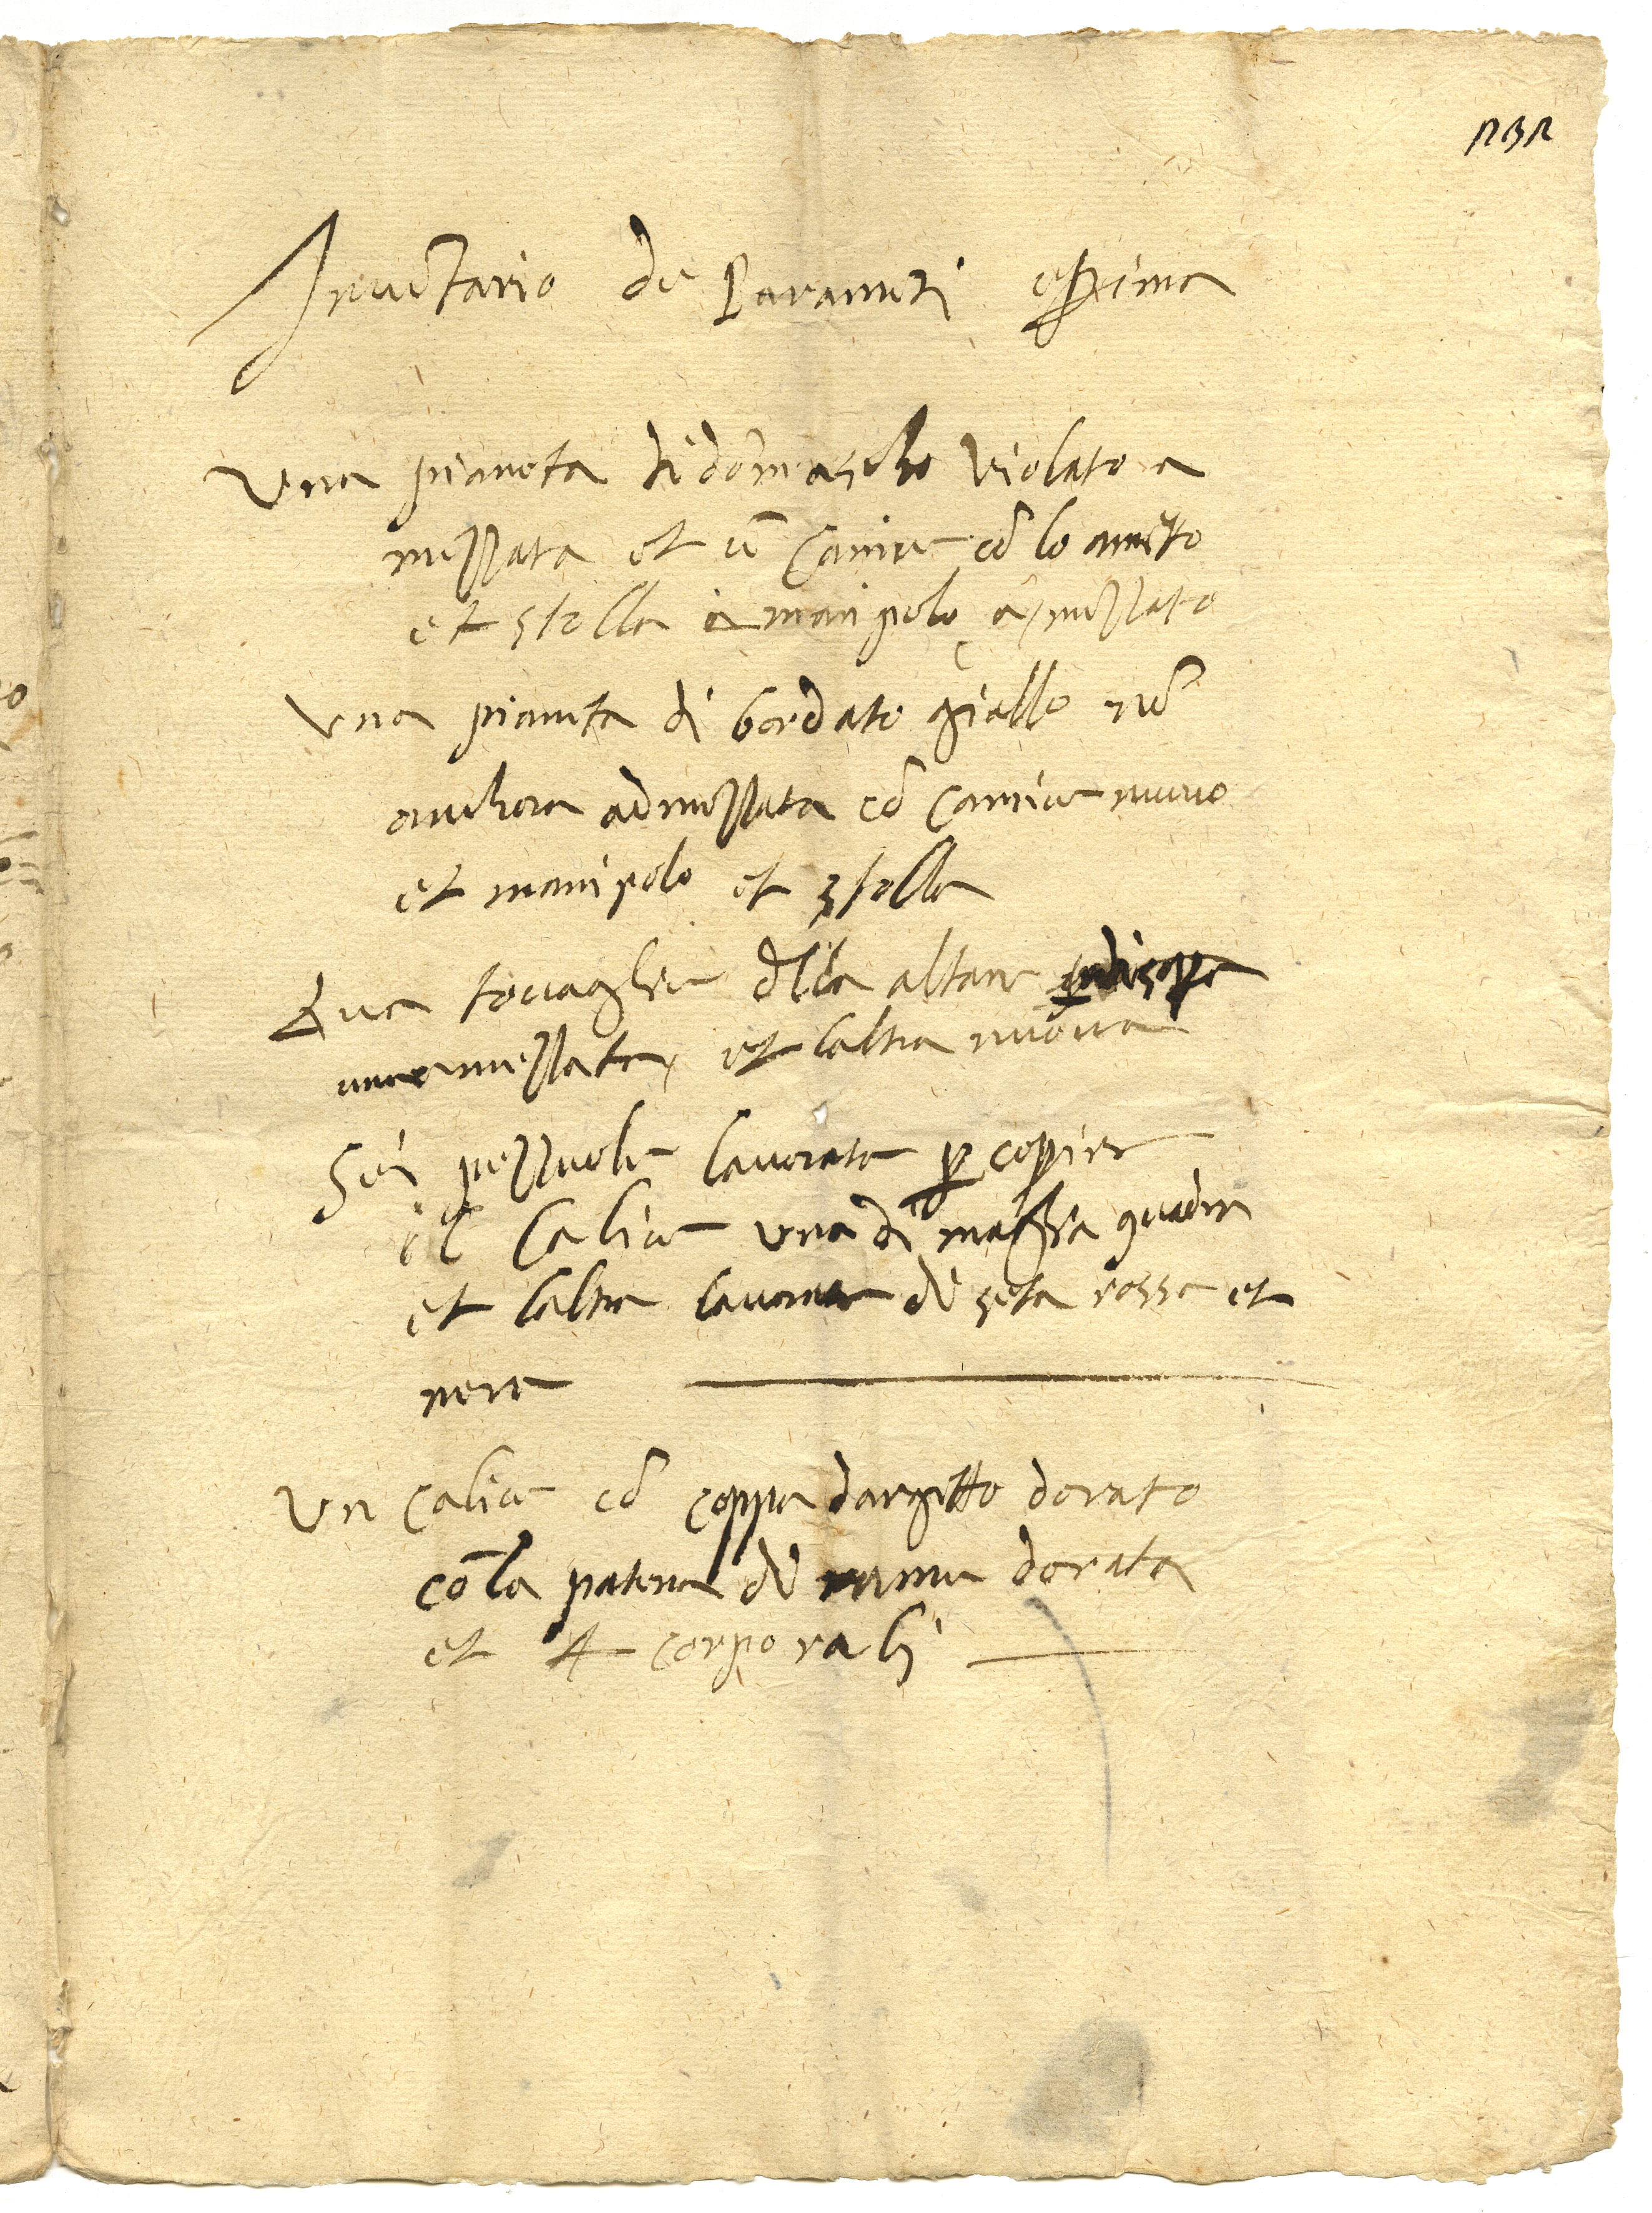 Inuētario de Paramēti e prima
Una pianeta di domascho violato a
mezzata et ū camice cō lo amitto
et stolla e manipolo amezzato
Una pianeta di bordato giallo nō
anchora admezzata cō camice nuovo
et manipolo et stolla
Due tovaglie della altare
una mezzata et laltra nuova
Sei pezzuole lavorate p coprire
il calice una di maglia
et laltra lavorata di seta rossa et
nera
Un calice cō coppa dargētto dorato
cō la patena di rame dorata
et 4 corporali